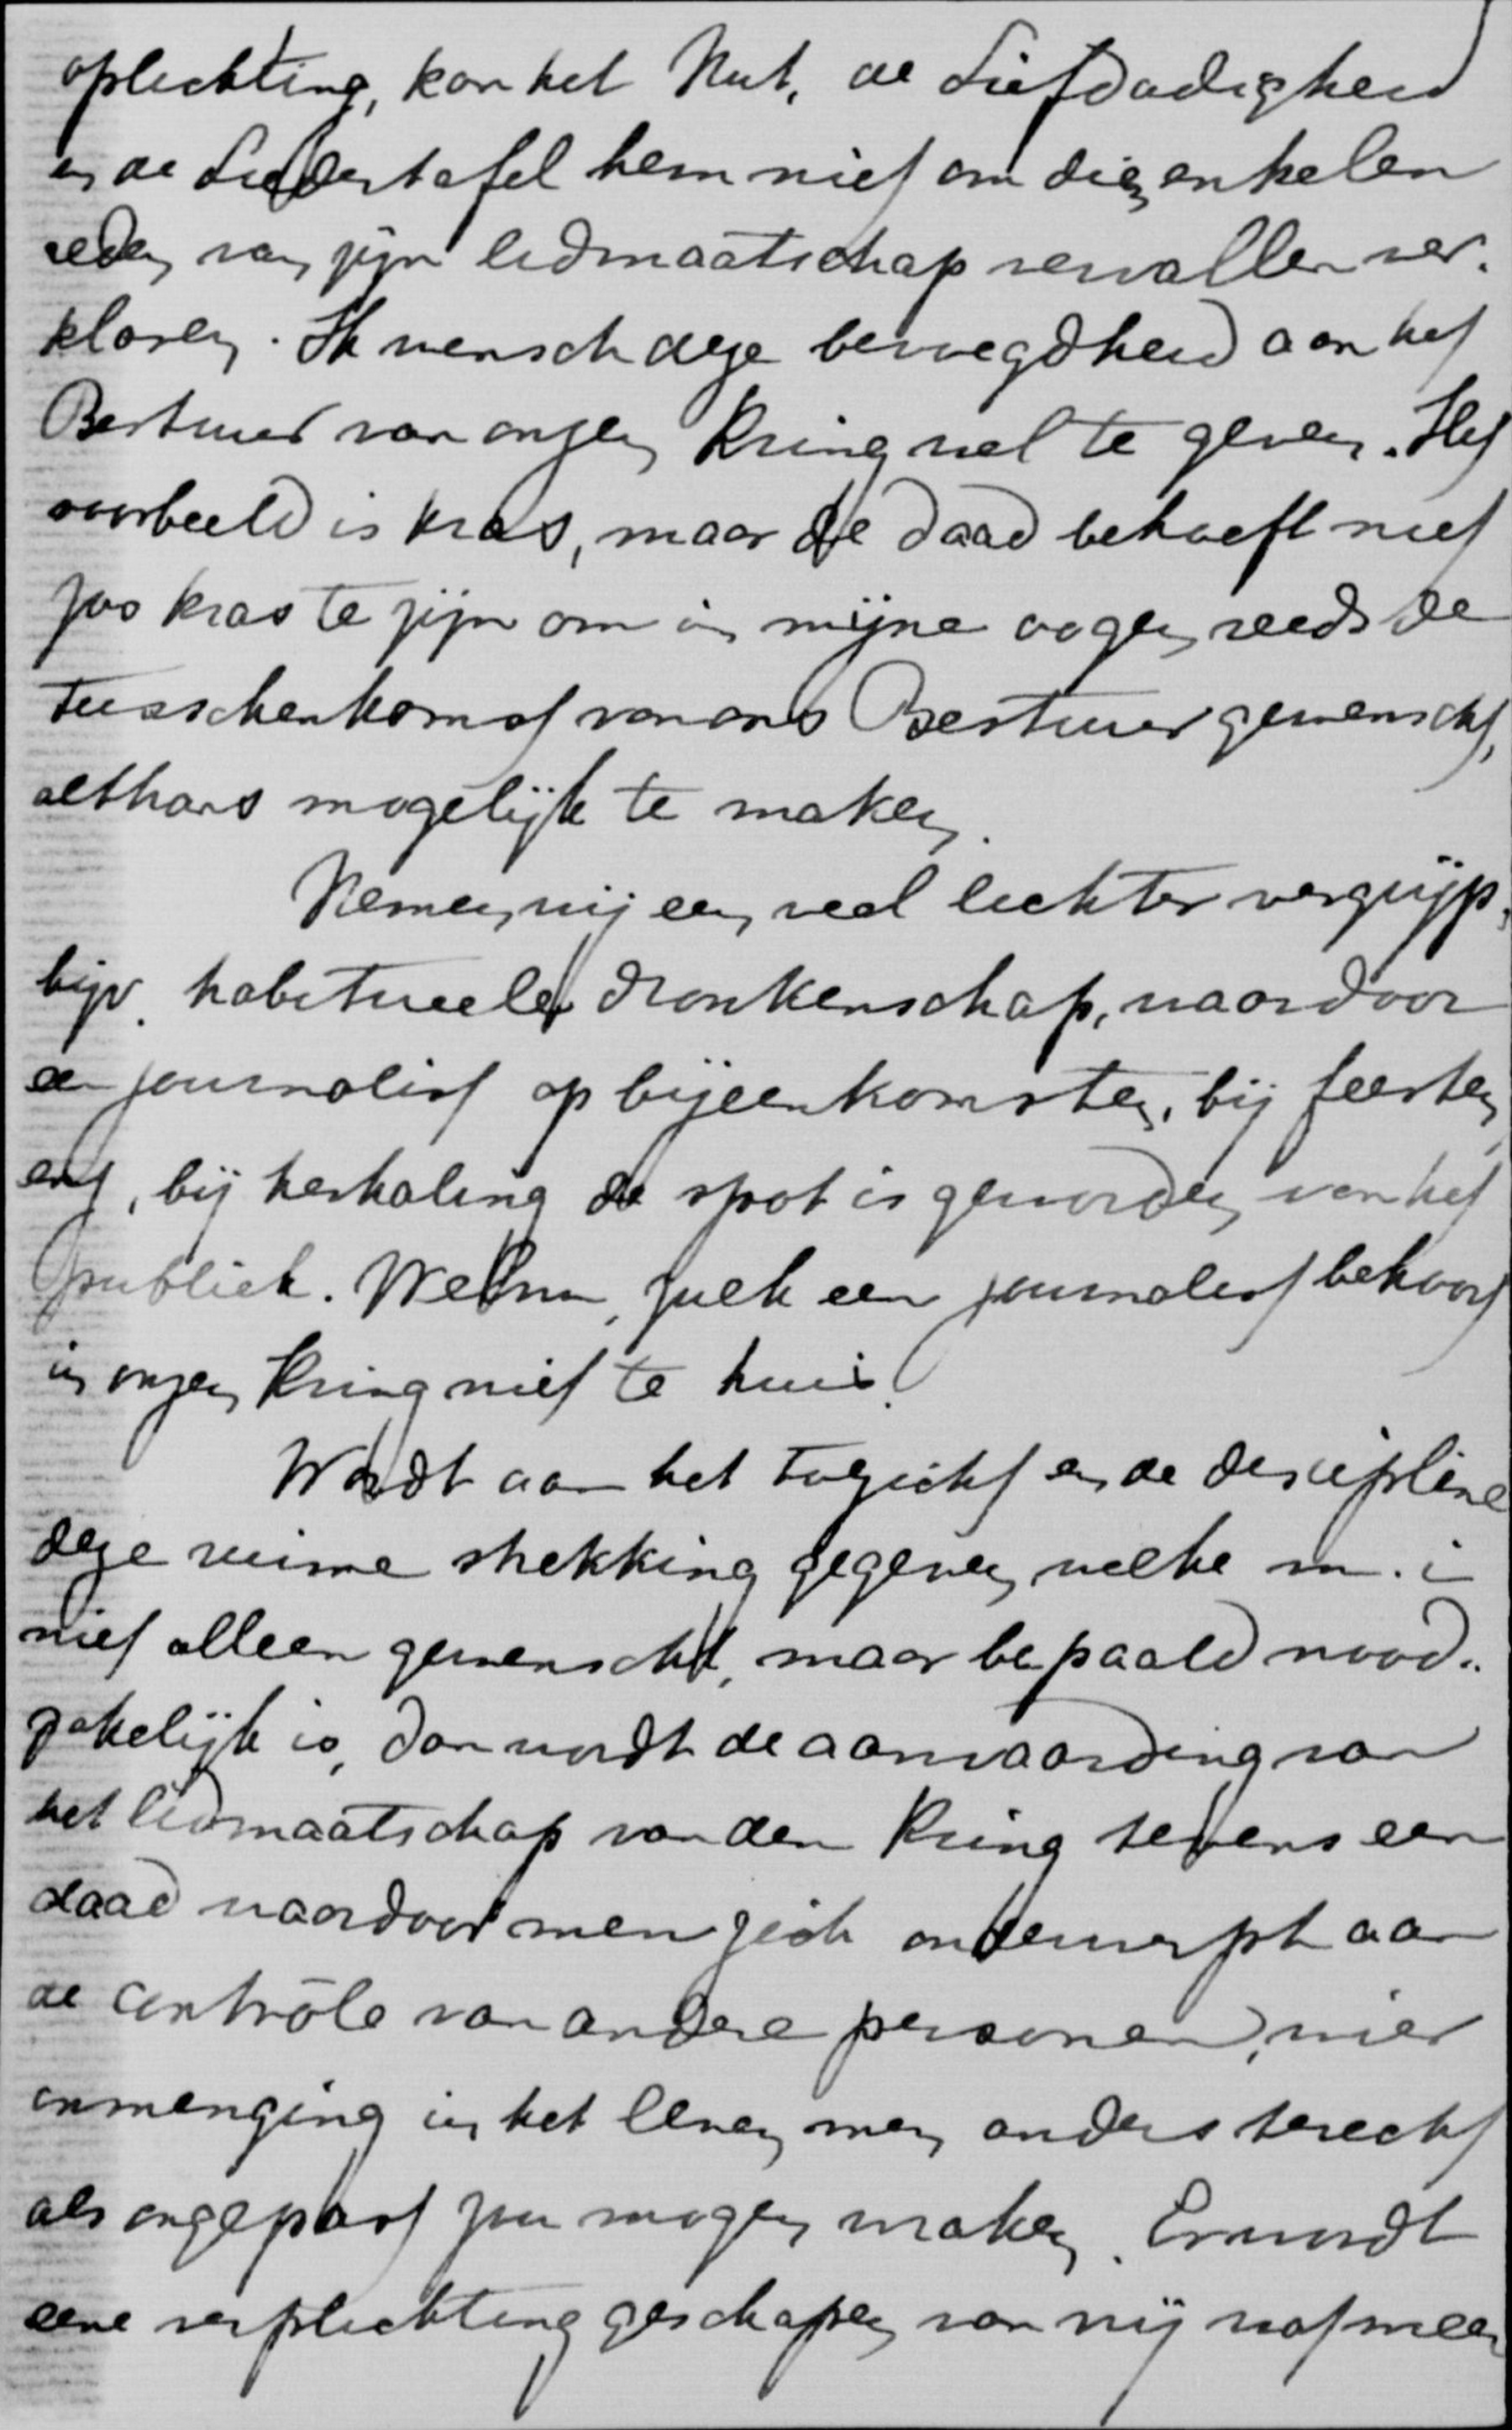 oplichting, kan het Nut, de Liefdadigheid
en de Liedertafel hem niet om die enkelen
reden van zijn lidmaatschap vervallen ver-
klaren. Ik wensch deze bevoegdheid aan het
Bestuur van onzen Kring wel te geven. Het
voorbeeld is kras, maar de daad behoeft niet
zoo kras te zijn om in mijne oogen reeds de
tusschenkomst van ons Bestuur gewenscht,
althans mogelijk te maken.
Nemen wij een veel lichter vergrijp,
bijv. habitueele dronkenschap, waardoor
een journalist op bijeenkomsten, bij feesten
enz, bij herhaling de spot is geworden van het
publiek. Welnu, zulk een journalist behoort
in onzen Kring niet te huis.
Wordt aan het toezicht en de discipline
deze ruime strekking gegeven, welke m. i
niet alleen gewenscht, maar bepaald nood-
zakelijk is, dan wordt de aanvaarding van
het lidmaatschap van den Kring tevens een
daad waardoor men zich onderwerpt aan
de contrôle van andere personen, wier
inmenging in het leven men anders terecht
als ongepast zou mogen wraken. Er wordt
eene verplichting geschapen van vrij wat meer